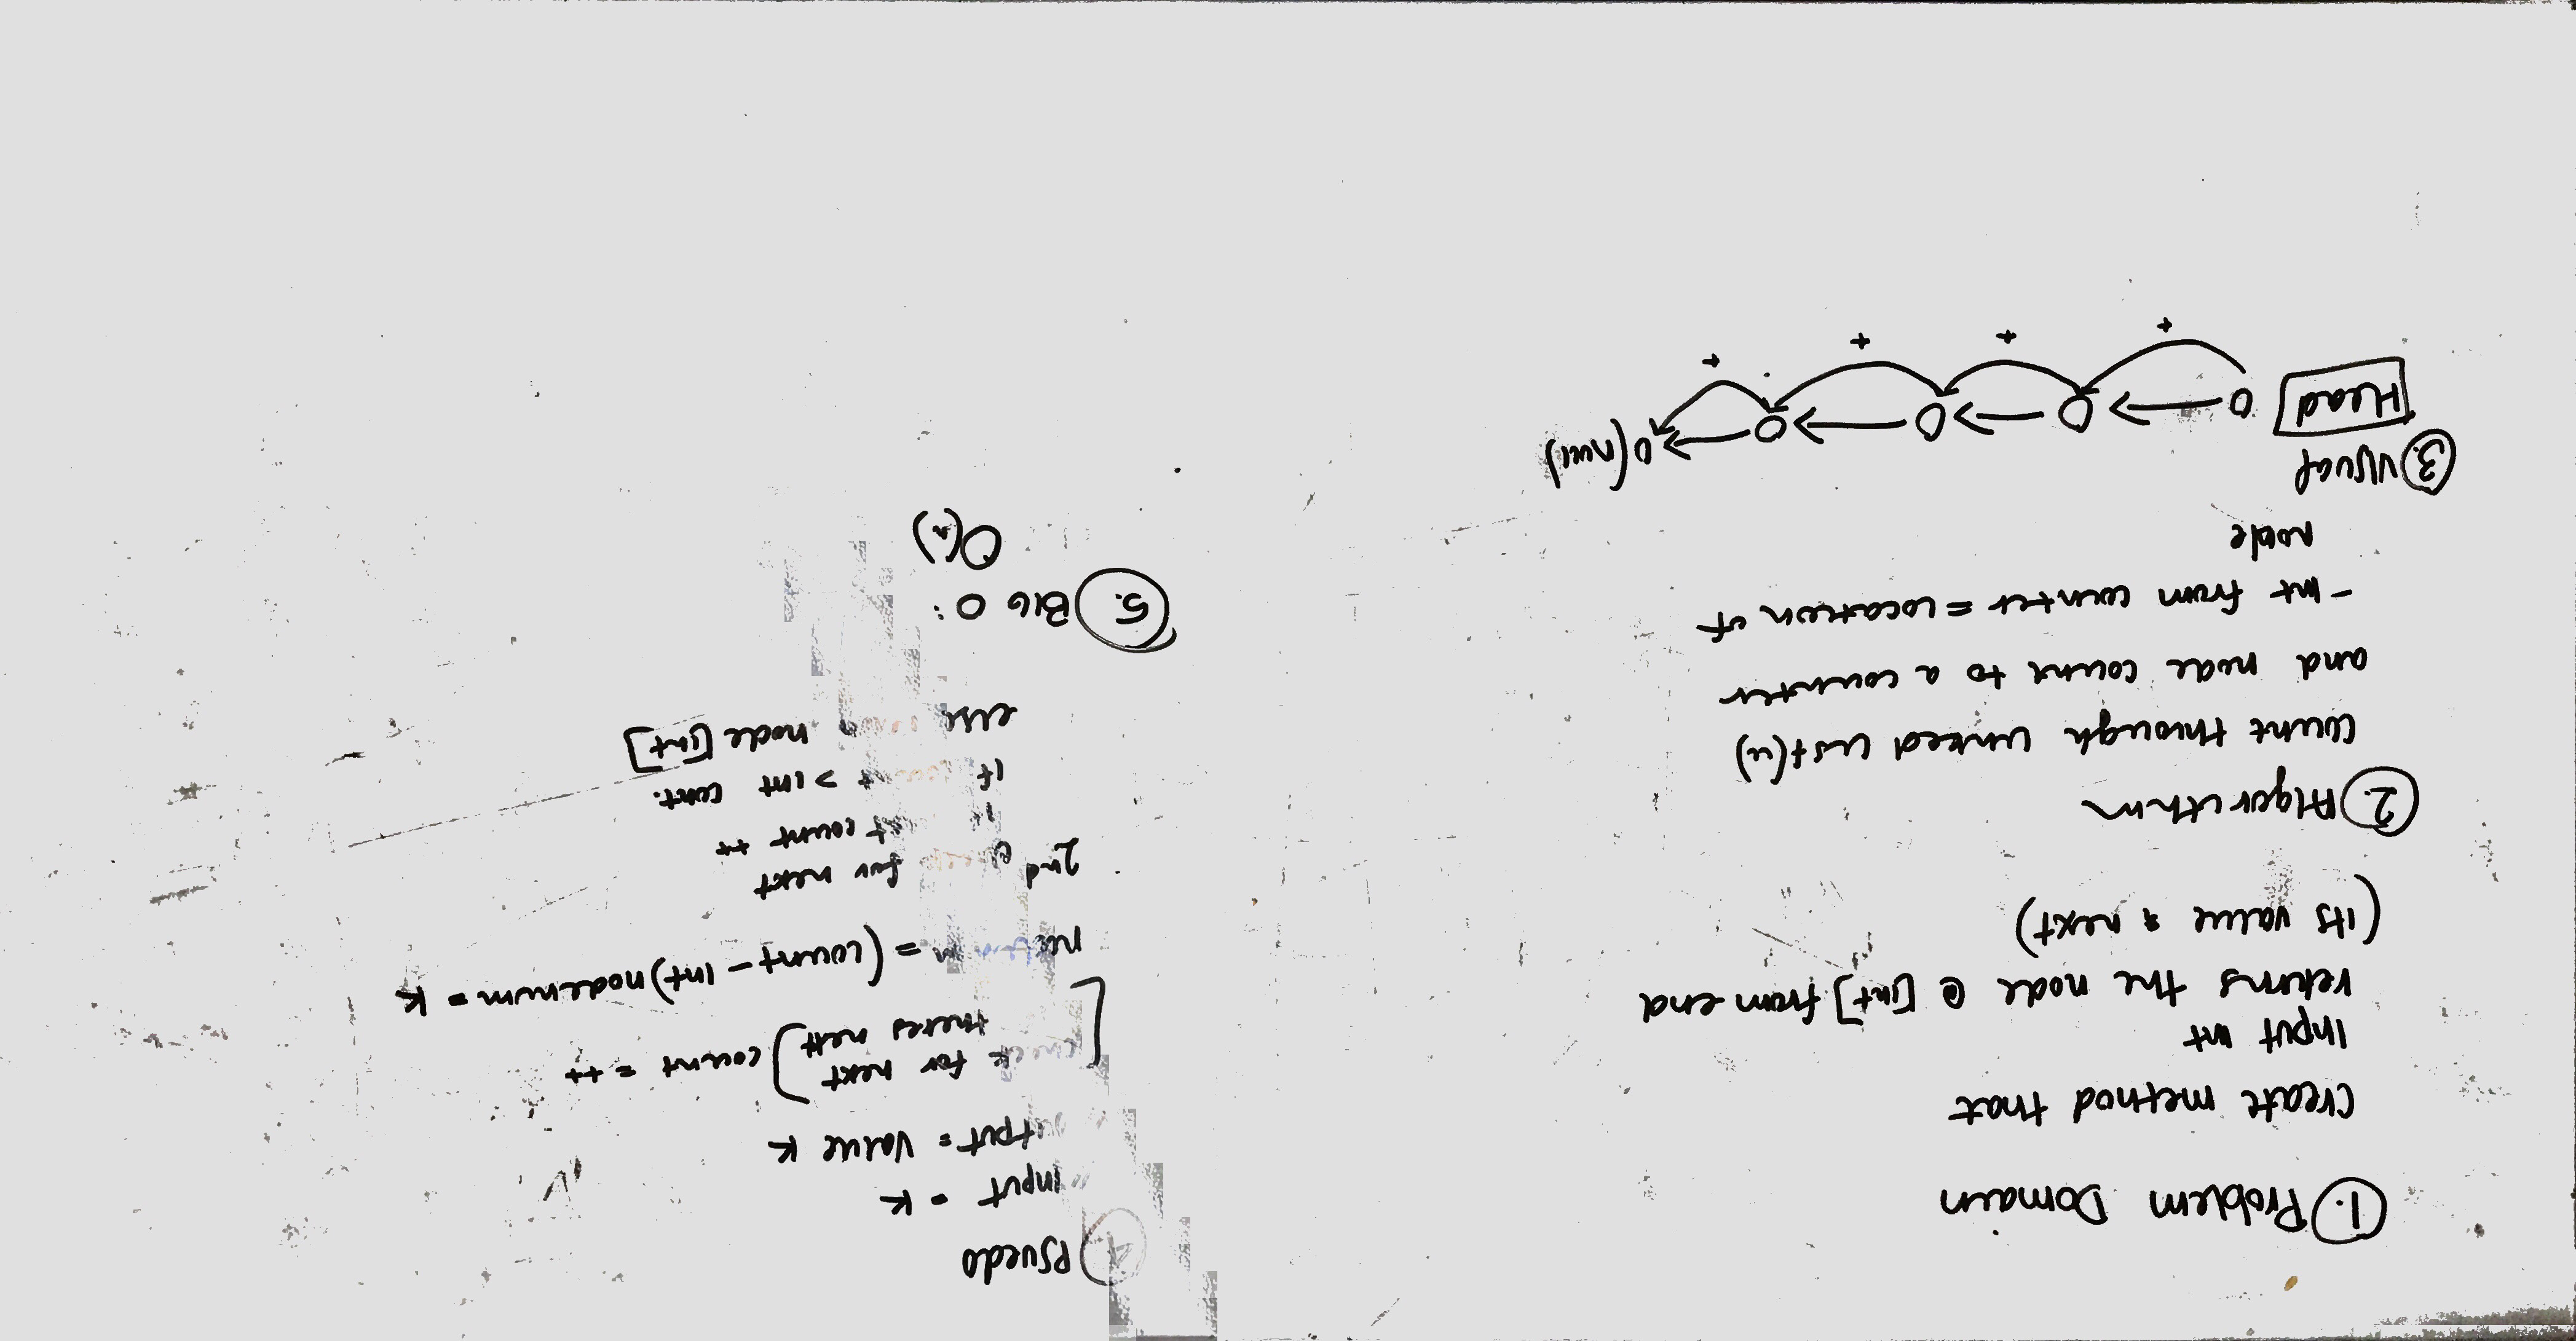 1. Problem Domain
Create method that
Input int
returns the node @ [int] from end
(its value & next)
2. Algorithm
Count through linked list (ll)
and node count to a counter
- Int from counter = location of
node
3. Visual
Head O → O → O → O → O (null)
+ + + +
4. Psuedo
Input = K
output = Value K
check for next
theres next) count = ++
return = (count - int) nodenum = K
2nd check for next
count ++
if count > int cont.
else node [int]
5. BIG O:
O(n)